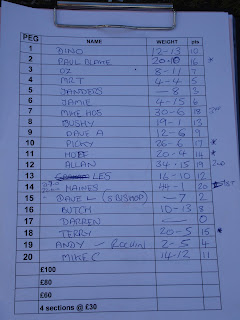 PEG NAME WEIGHT pts
1 DINO 12-13 10
2 PAUL BLAKE 20-10 16 *
3 OZ 8-11 7
4 MRT 4-4 5
5 SANDERS — 8 3
6 JAMIE 4-15 6
7 MIKE HUS 30-6 18
8 BUSHY 19-1 13
9 DAVE A 12-6 9
10 PICKY 26-6 17 *
11 HUTT 20-4 14 *
12 ALLAN 34-15 19 2ND
13 LES 16-10 12
14 HAINES 44-1 20 1ST
15 DAVE L (S BISHOP) — 7 2
16 BUTCH 10-13 8
17 DARREN — 0
18 TERRY 20-5 15 *
19 ANDY - 2-5 4
20 MIKE C 14-12 11
£100
£80
£60
4 sections @ £30